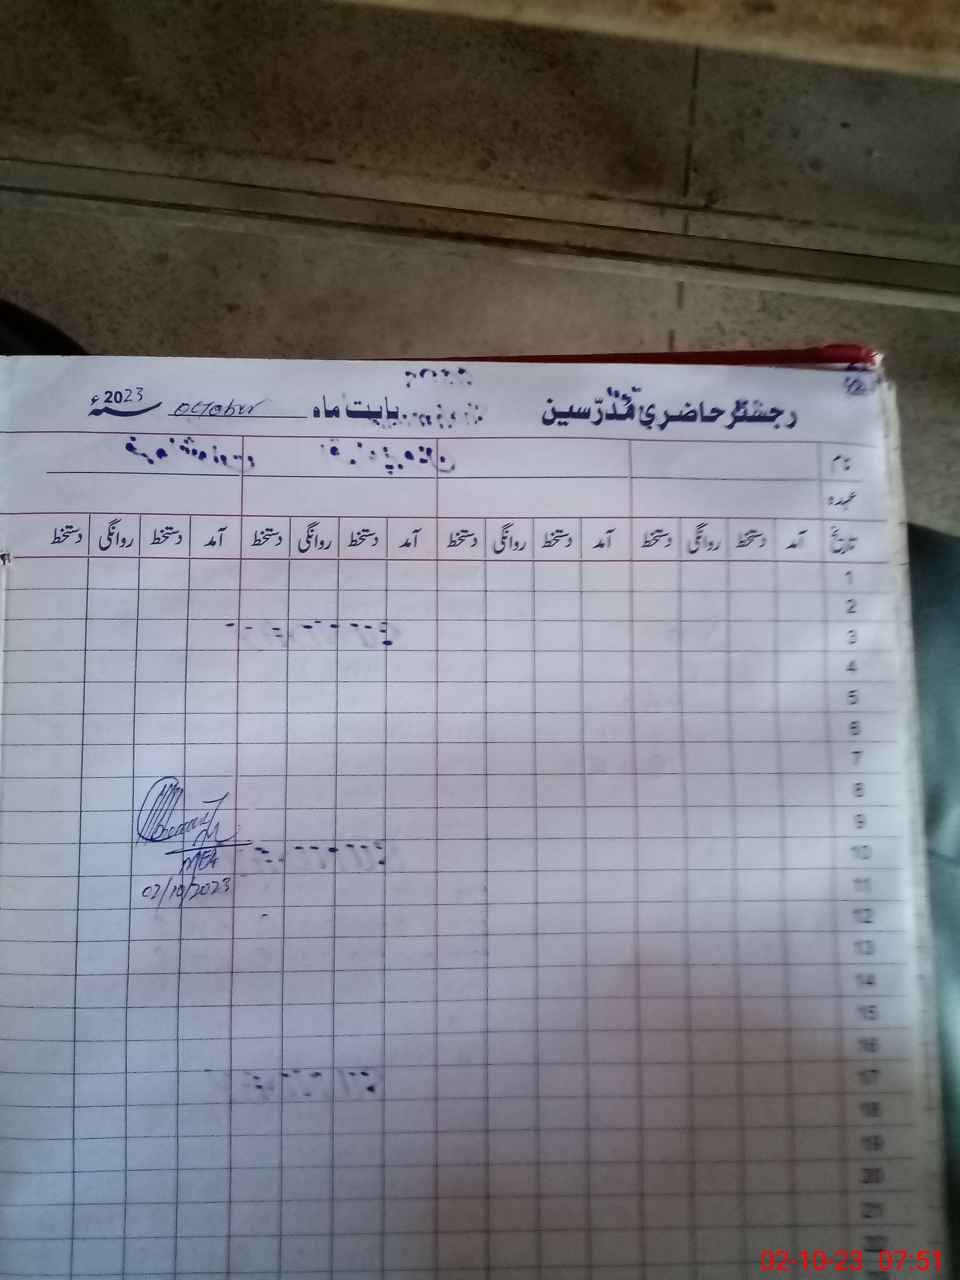 رجسٹر حاضری مدرسین بابت ماہ October 2023 سنہ ء
نام
عہدہ
تاریخ آمد دستخط روانگی دستخط آمد دستخط روانگی دستخط آمد دستخط روانگی دستخط آمد دستخط روانگی دستخط
1
2
3
4
5
6
7
8
9
10
MEA
11
02/10/2023
12
13
14
15
16
17
18
19
20
21
02-10-23 07:51